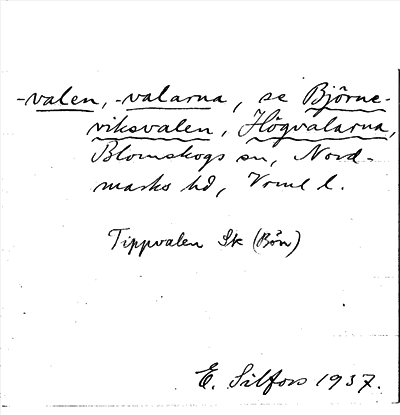 -valen, -valarna, se Björne-
viksvalen, Högvalarna,
Blomskogs sn, Nord-
marks hd, Verml l.
Tippvalen Sk (Bön)
E. Silfors 1937.